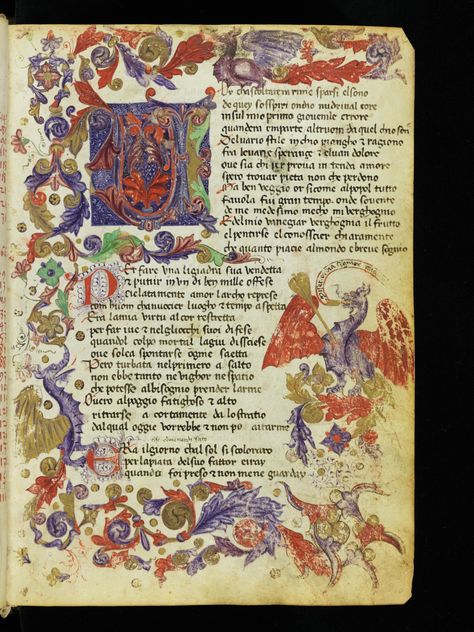 Oy chascoltai in rime sparsi el sono
de quey sosspiri ondio nudriva l core
in sul mio primo giovenile errore
quandera imparte altruom da quel chio son
Del vario stile in chio piangho & ragiono
fra le vane speranze & el van dolore
ove sia chi per prova intenda amore
spero trovar pieta non che perdono
Ma ben veggio or sicome al popol tutto
favola fui gran tempo onde sovente
de me medesimo mecho mi verghogno
Edel mio vanegiar verghognia il frutto
el pentirse el conosscier chiaramente
che quanto piacie al mondo e breve sogno
Per fare una ligiadra sua vendetta
& punir in un di ben mille offese
cielatamente amor larcho represe
com huom cha nuocer luogho & tempo aspetta
Era la mia virtu al cor restretta
per far ive & negliocchi suoi difese
quandol colpo mortal la giu discese
ove solea spontarse ogne saetta
Pero turbata nel primero a salto
non ebbe tanto ne vighor ne spatio
che potesse al bisogno prender larme
Overo al poggio fatighoso & alto
ritrarse a cortamente da lo stratio
dal qual oggie vorrebbe & non po aitarme
Era il giorno chal sol si scoloraro
per la pieta del suo fattor e i ray
quando i foi preso & non me ne guarday